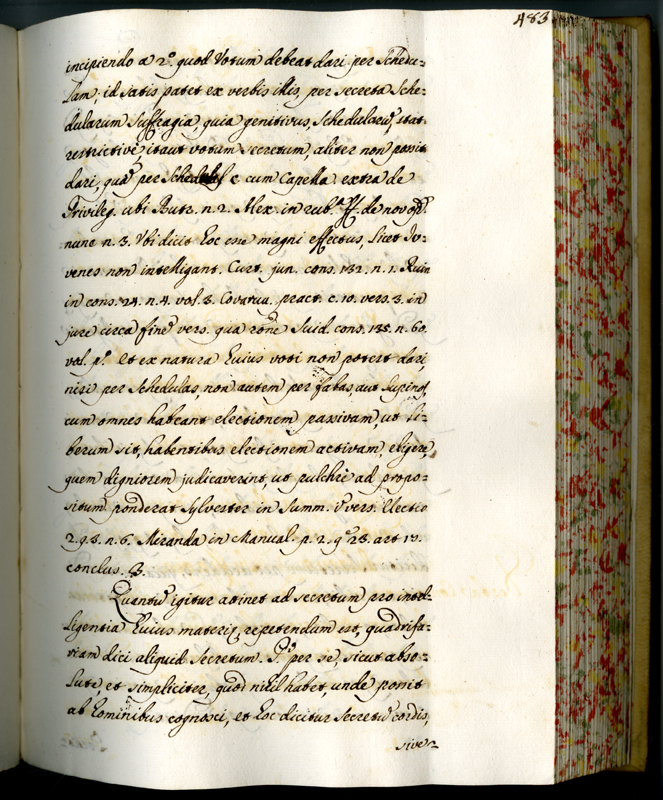 483
incipiendo a 2.º quod Votum debeat dari per Schedu-
lam, id satis patet ex verbis illis, per secreta Sche-
dularum Suffragia, quia genitivus, Schedularũ, stat
restrictivè, itaut votum secretum, aliter non possit
dari, quã per c cum Capella extra de
Privileg. ubi Butr. n. 2. Alex. in rub.ª ff. de nov. op.
nunc n. 3. Ubi dicit hoc esse magni effectus, licet Ju-
venes non intelligant. Curt. jun. cons. 132. n. 1. Ruin
in cons. 24. n. 4. vol. 3. Covarru. pract. c. 10. vers. 3. in
jure circa finẽ vers. qua rõne Suid. cons. 135. n. 60.
vol. p.º Et ex natura huius voti non potest dari,
nisi per Schedulas, non autem per fabas, aut lupinos,
cum omnes habeant electionem passivam, ut li-
berum sit, habentibus electionem activam, eligere,
quem digniorem judicaverint, ut pulchrè ad propo-
situm ponderat Sylvester in Summ. vers. Electio
2. q. 8. n. 6. Miranda in Manual. p. 2. q. 23. art. 13.
conclus. 3.
Quantũ igitur atinet ad secretum pro intel-
ligentia huius materię, repetendum est, quadrifa-
riam dici aliquid Secretum. P.º per se, sicut abso-
lutè, et simpliciter, quod nihil habet, unde possit
ab hominibus cognosci, et hoc dicitur Secretũ cordis,
sive